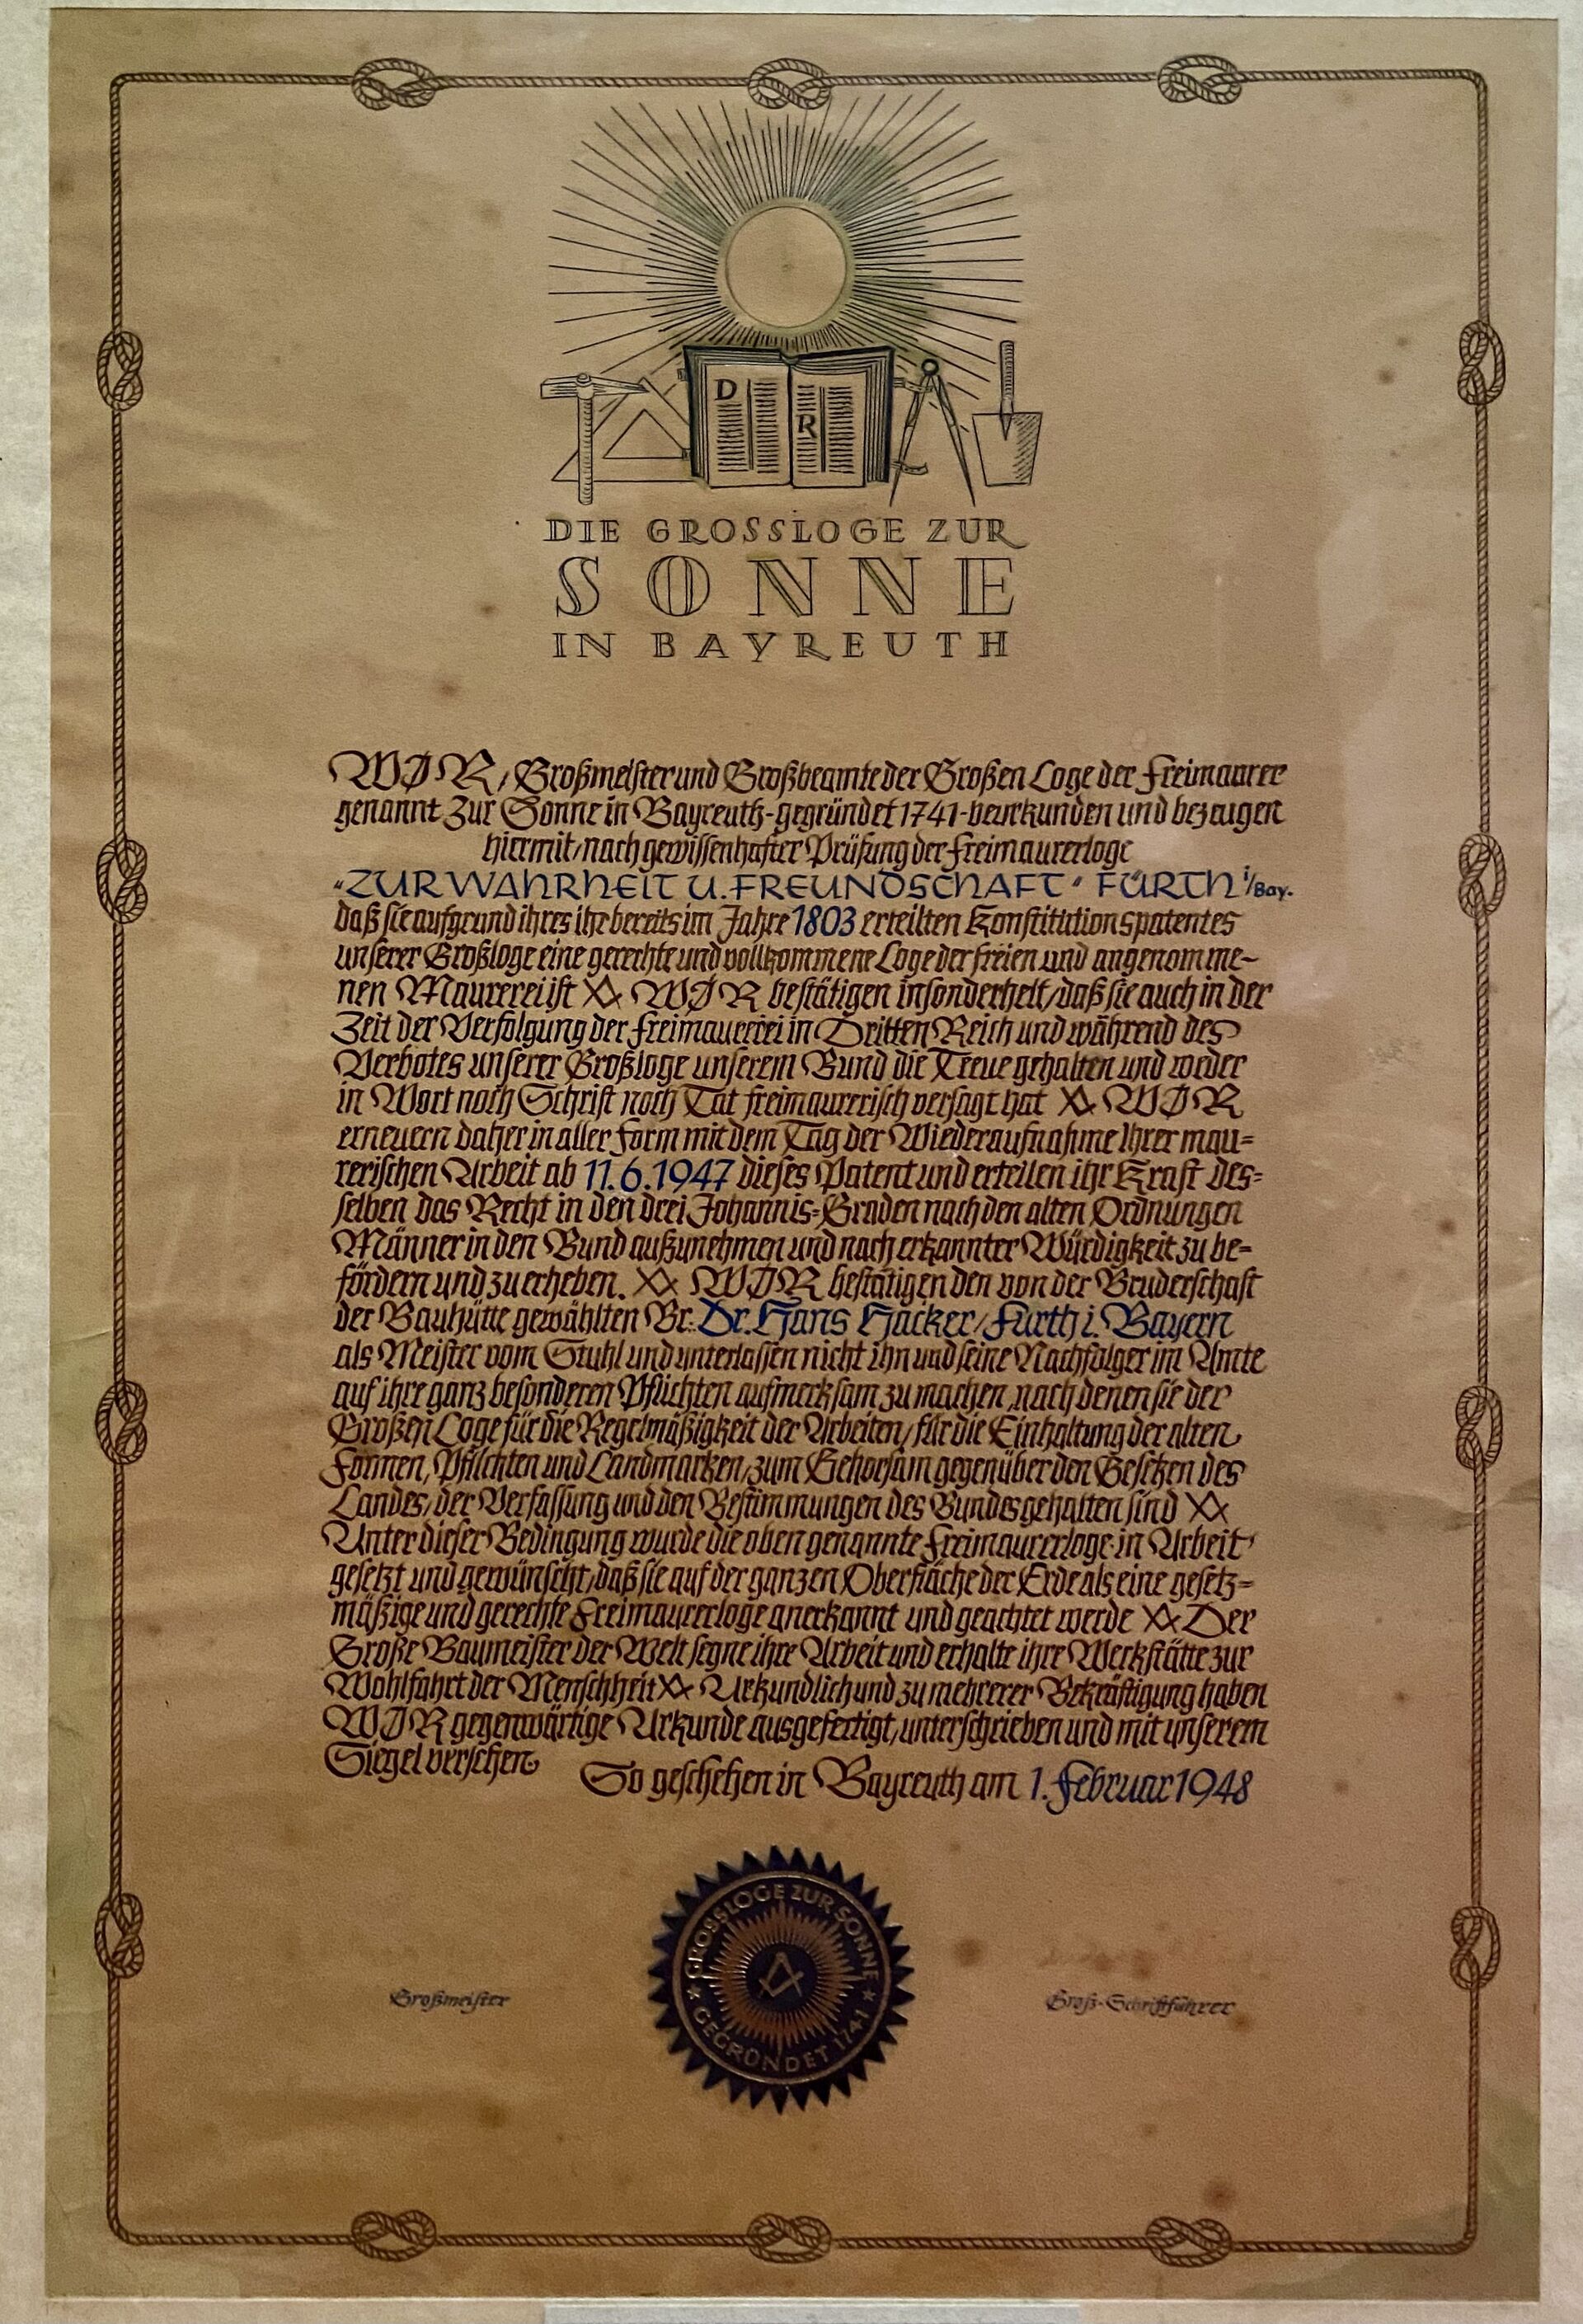 D
R
DIE GROSSLOGE ZUR
SONNE
IN BAYREUTH
WIR, Großmeister und Großbeamte der Großen Loge der Freimaurer
genannt Zur Sonne in Bayreuth - gegründet 1741 - beurkunden und bezeugen
hiermit, nach gewissenhafter Prüfung der Freimaurerloge
"ZUR WAHRHEIT U. FREUNDSCHAFT" FÜRTH i/Bay.
daß sie aufgrund ihres ihr bereits im Jahre 1803 erteilten Konstitutionspatentes
unserer Großloge eine gerechte und vollkommene Loge der freien und angenomme-
nen Maurerei ist WIR bestätigen insonderheit, daß sie auch in der
Zeit der Verfolgung der Freimauerei in Dritten Reich und während des
Verbotes unserer Großloge unserem Bund die Treue gehalten und weder
in Wort noch Schrift noch Tat freimaurerisch versagt hat WIR
erneuern daher in aller Form mit dem Tag der Wiederaufnahme Ihrer mau=
rerischen Arbeit ab 11.6.1947 dieses Patent und erteilen ihr Kraft des=
selben das Recht in den drei Johannis=Graden nach den alten Ordnungen
Männer in den Bund aufzunehmen und nach erkannter Würdigkeit zu be=
fördern und zu erheben. WIR bestätigen den von der Bruderschaft
der Bauhütte gewählten Br. Dr. Hans Hacker, Fürth i. Bayern
als Meister vom Stuhl und unterlassen nicht ihn und seine Nachfolger im Amte
auf ihre ganz besonderen Pflichten aufmerksam zu machen, nach denen sie der
Großen Loge für die Regelmäßigkeit der Arbeiten, für die Einhaltung der alten
Formen, Pflichten und Landmarken, zum Gehorsam gegenüber den Gesetzen des
Landes, der Verfassung und den Bestimmungen des Bundes gehalten sind
Unter dieser Bedingung wurde die oben genannte Freimaurerloge in Arbeit
gesetzt und gewünscht, daß sie auf der ganzen Oberfläche der Erde als eine gesetz=
mäßige und gerechte Freimaurerloge anerkannt und geachtet werde Der
Große Baumeister der Welt segne ihre Arbeit und erhalte ihre Werkstätte zur
Wohlfahrt der Menschheit Urkundlich und zu mehrerer Bekräftigung haben
WIR gegenwärtige Urkunde ausgefertigt, unterschrieben und mit unserem
Siegel versehen
So geschehen in Bayreuth am 1. Februar 1948
GROSSLOGE ZUR SONNE
GEGRÜNDET 1741
Großmeister
Groß-Schriftführer